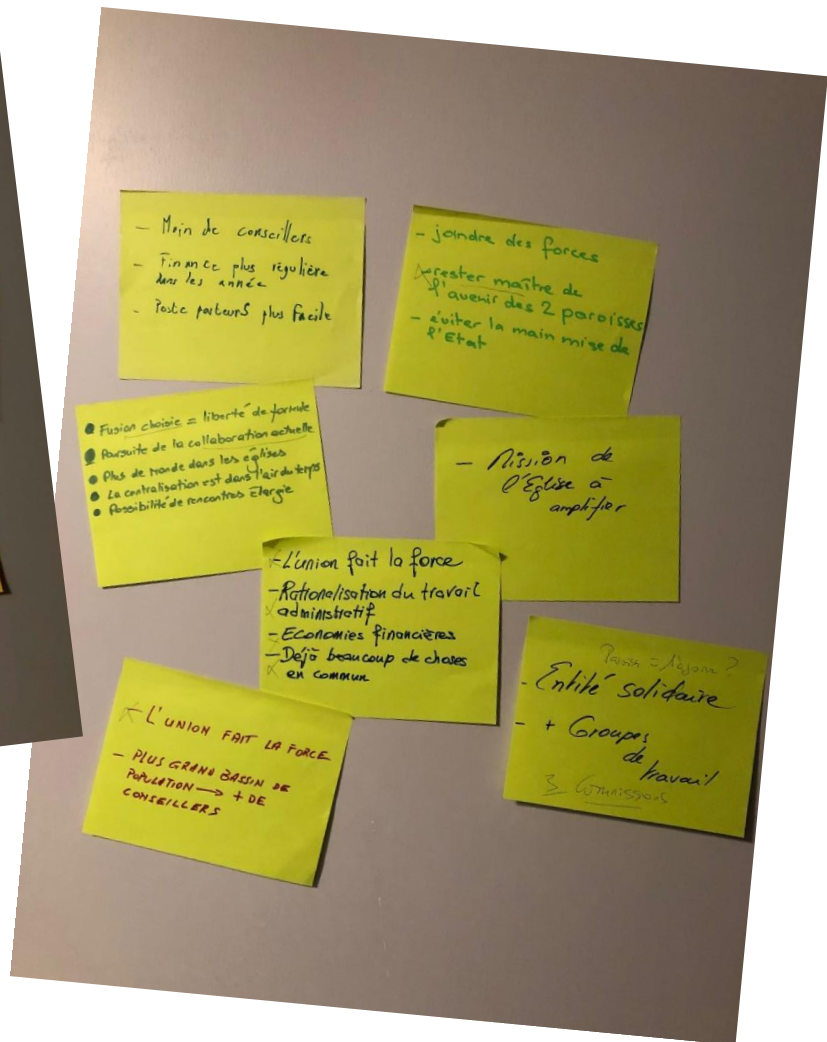 - Moin de conseillers
- Finance plus régulière
dans les année
- Poste porteurs plus facile
- joindre des forces
- rester maître de
l'avenir des 2 paroisses
- éviter la main mise de
l'Etat
• Fusion choisie = liberté de formule
• Poursuite de la collaboration actuelle
• Plus de monde dans les églises
• La centralisation est dans l'air du temps
• Possibilité de rencontres élargie
- Mission de
l'Eglise à
amplifier
- L'union fait la force
- Rationalisation du travail
administratif
- Economies financières
- Déjà beaucoup de choses
en commun
- L'UNION FAIT LA FORCE
- PLUS GRAND BASSIN DE
POPULATION → + DE
CONSEILLERS
- Entité solidaire
- + Groupes
de
travail
3 Commissions